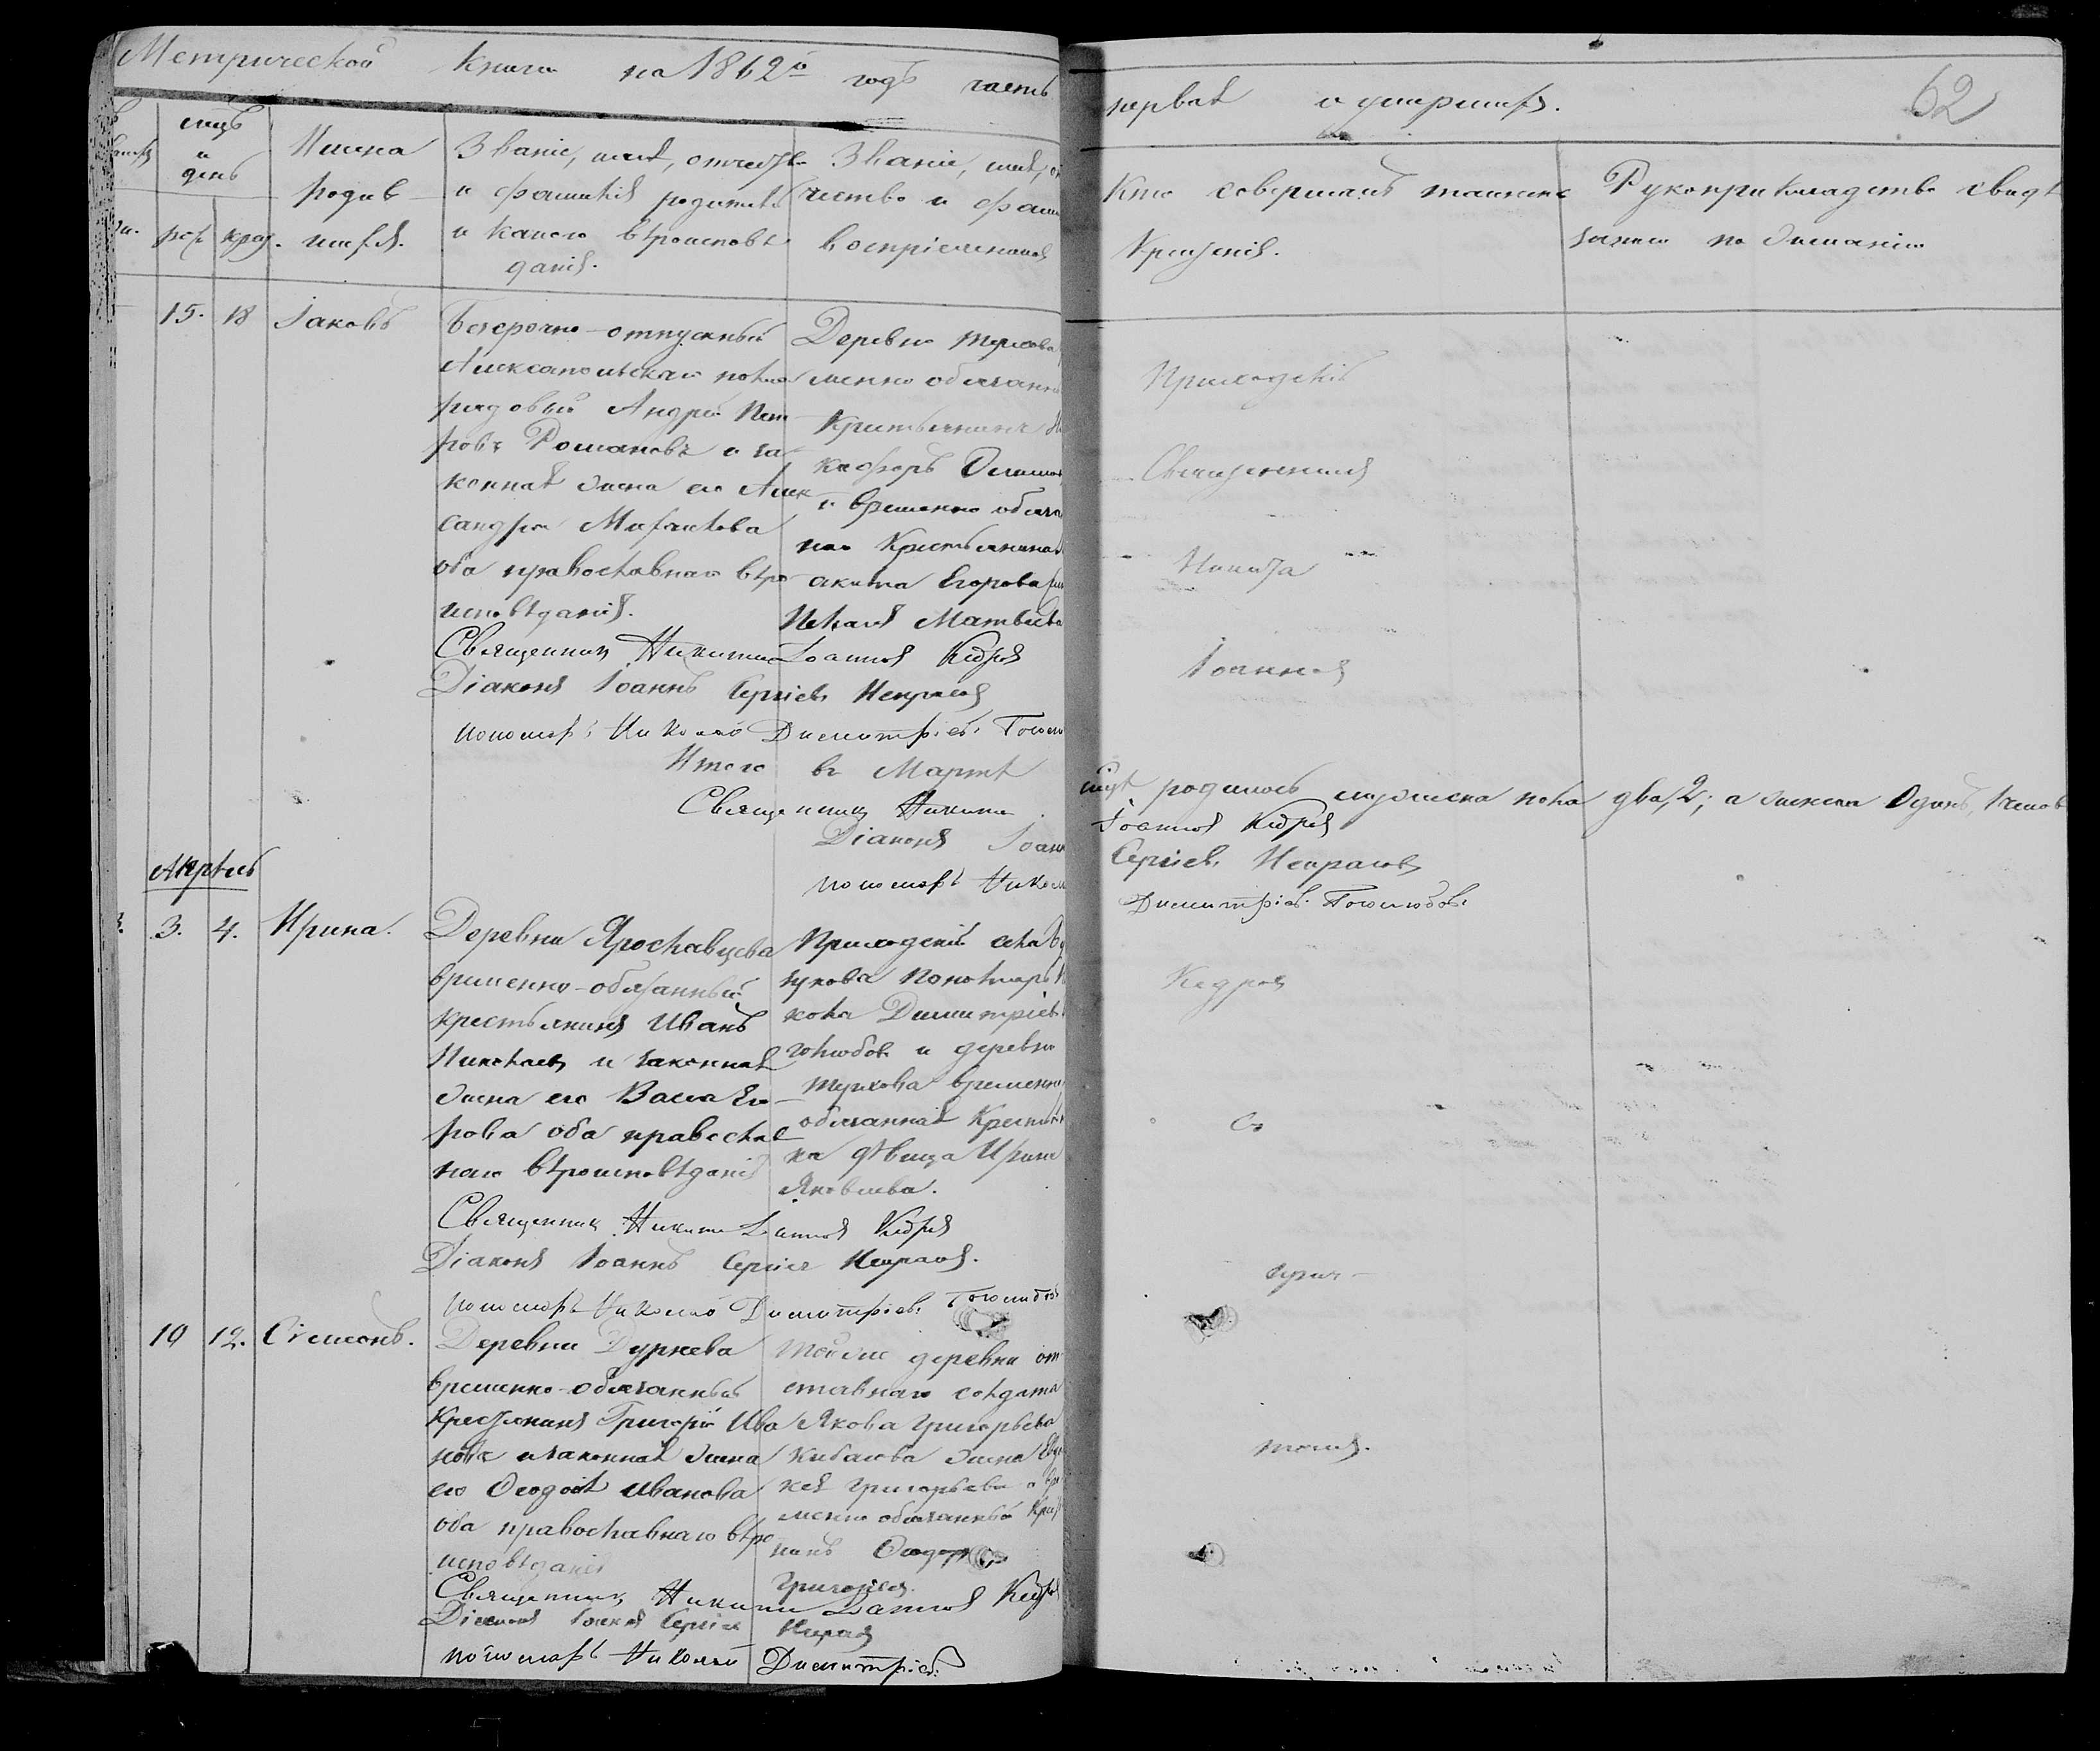 Метрической книги на 1862й годъ часть
первая о
62
мцъ
и
день
рож. крещ.
Имена
родив
шихся.
Званіе, имя, отчество
и фамилія родителей
и какого вѣроисповѣ
данія.
Званіе, имя, от
чество и фами
воспріемниковъ
Кто совершалъ таинство
Крещенія.
Рукоприкладство свидѣ
записи по желанію
15. 18 Іаковъ
Безсрочно-отпускный
Алексапольскаго полка
рядовый Андрей Пет
ровъ Романовъ и за
конная жена его Алек
сандра Михайлова
оба православнаго вѣро
исповѣданія.
Деревни
менно обязанн
Крестьянинъ
и временно обяза
наго Крестьянина
Егорова
Пелагія Матвѣева
Священникъ Никита Іоанновъ Кедровъ
Діаконъ Іоаннъ Сергіевъ Некрасовъ
пономарь Николай Димитріевъ
Итого въ Мартѣ мцѣ родилось мужеска пола два, 2; а женска Одинъ, 1 челов
Священникъ Никита Іоанновъ Кедровъ
Діаконъ Іоаннъ Сергіевъ Некрасовъ
пономарь Николай Димитріевъ Боголюбовъ
Приходскій
Священникъ
Никита
Іоанновъ
Кедровъ
Съ
прич-
томъ.
Апрѣль
3. 4. Ирина.
Деревни Ярославцева
временно-обязанный
крестьянинъ Иванъ
Николаевъ и законная
жена его Васса Его
рова оба православ
наго вѣроисповѣданія
Приходскій села
Пономарь Ни
колай Димитріевъ
голюбовъ и деревни
временно
обязанная Крестьян
ка дѣвица Ирина
Яковлева.
Священникъ Никита Іоанновъ Кедровъ
Діаконъ Іоаннъ Сергіевъ Некрасовъ.
пономарь Николай Димитріевъ Боголюбовъ
10 12. Сімеонъ.
Деревни Дурнева
временно-обязанный
Крестьянинъ Григорій Ива
новъ и законная жена
его Ѳеодосія Иванова
оба православнаго вѣро
исповѣданія
Той же деревни от
ставнаго солдата
Якова Григорьева
жена Евдо
кія Григорьева и вре
менно обязанный Крестья
нинъ
Григорьевъ.
Священникъ Никита Іоанновъ Кедровъ
Діаконъ Іоаннъ Сергіевъ Некрасовъ
пономарь Николай Димитріевъ